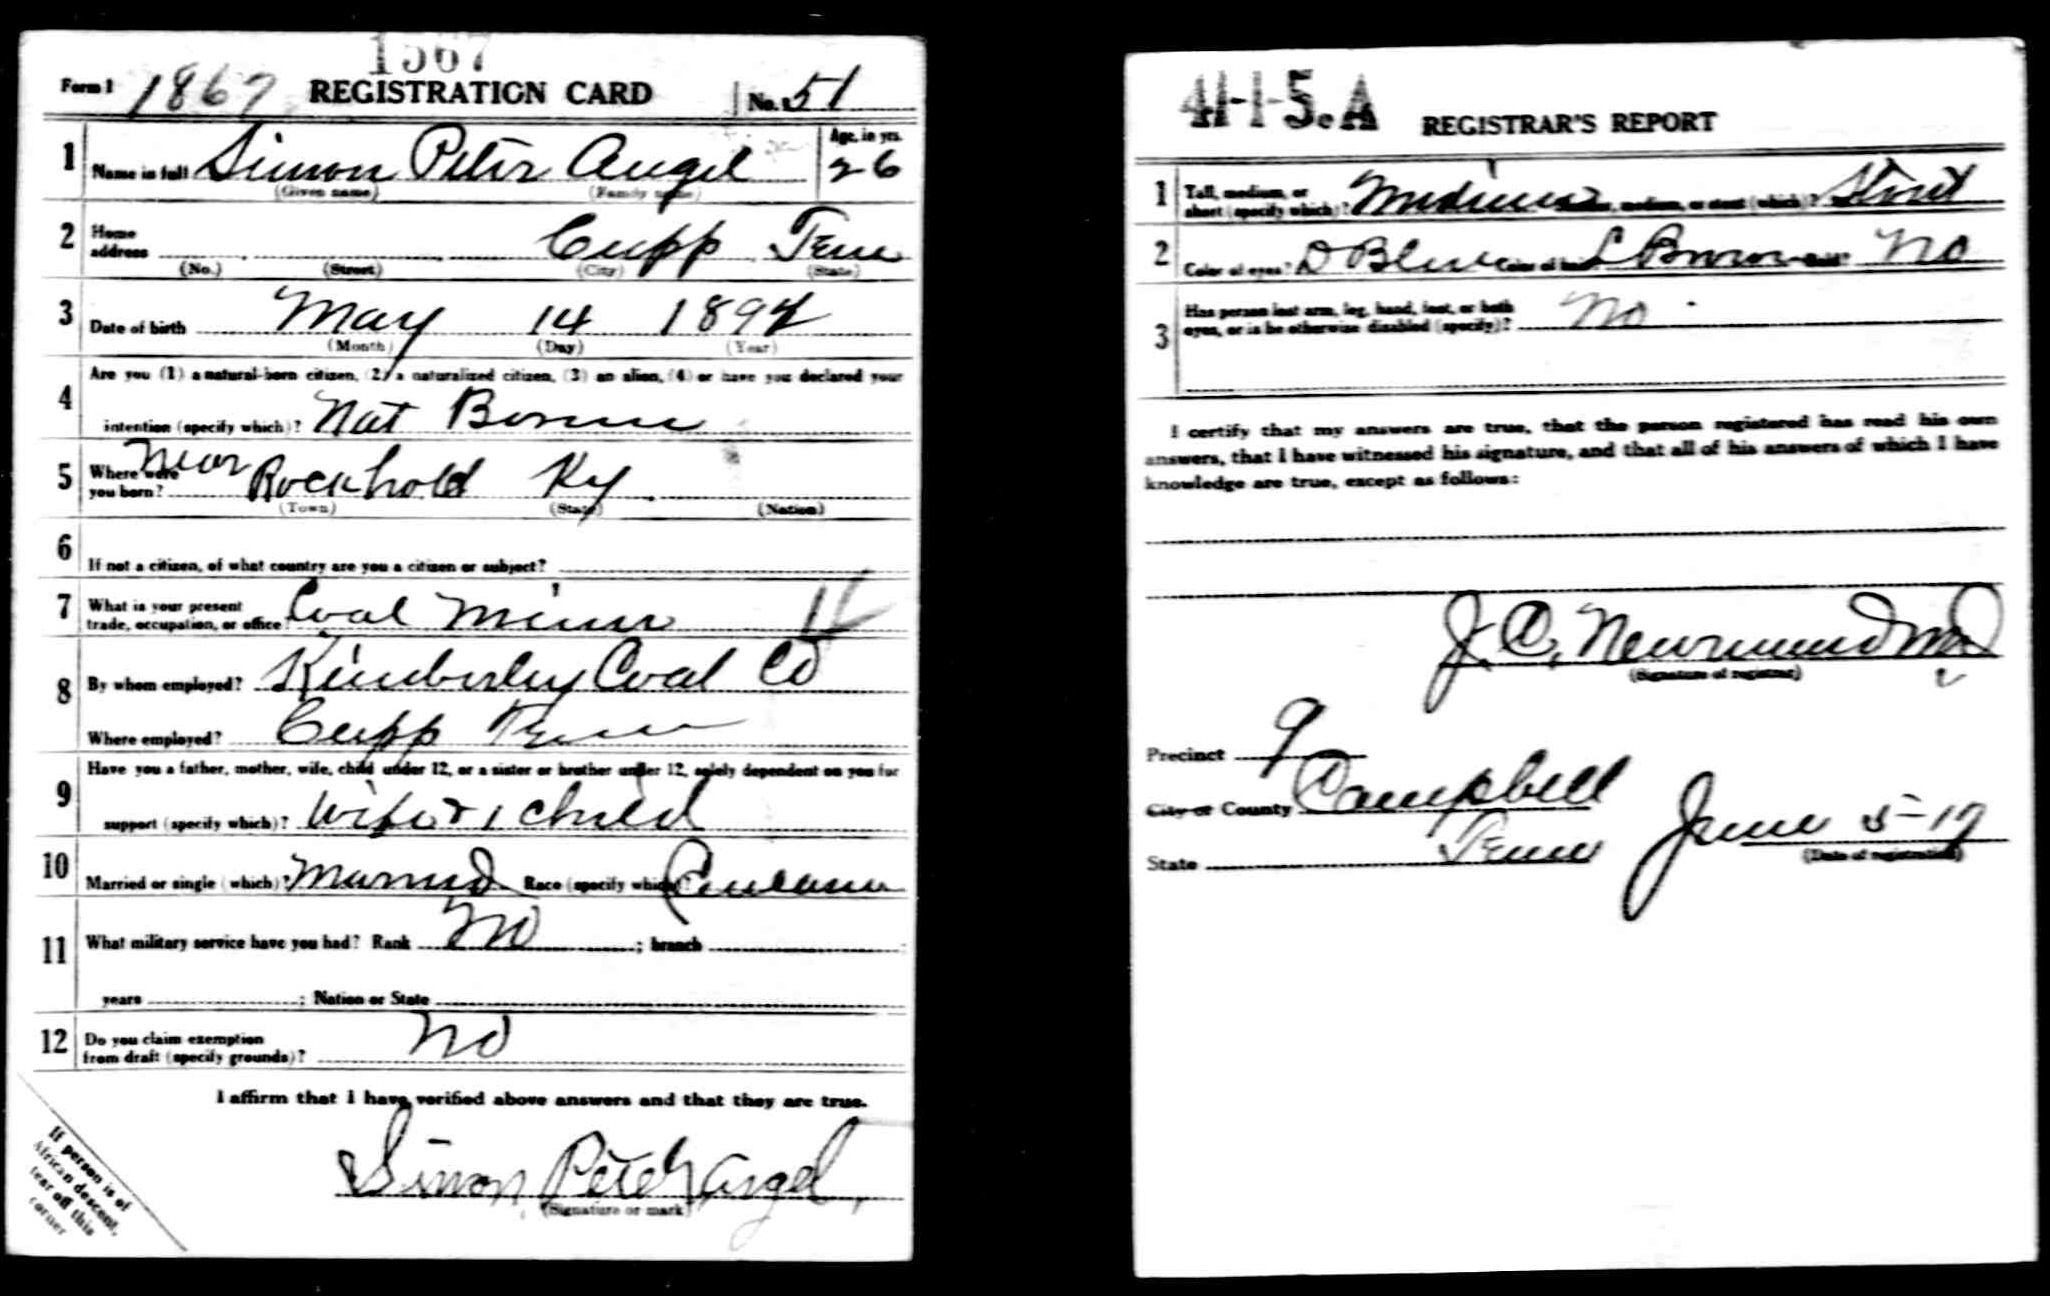 1567
Form 1 1867 REGISTRATION CARD No. 51
1 Name in full Simon Peter Angel Age, in yrs. 26
(Given name) (Family name)
2 Home address Cupp Tenn
(No.) (Street) (City) (State)
3 Date of birth May 14 189
(Month) (Day) (Year)
4 Are you (1) a natural-born citizen, (2) a naturalized citizen, (3) an alien, (4) or have you declared your
intention (specify which)? Nat Born
5 Where were you born? Near Rockhold Ky
(Town) (State) (Nation)
6 If not a citizen, of what country are you a citizen or subject?
7 What is your present trade, occupation, or office? Coal Miner
8 By whom employed? Kimberley Coal Co
Where employed? Cupp Tenn
9 Have you a father, mother, wife, child under 12, or a sister or brother under 12, solely dependent on you for
support (specify which)? Wife & 1 child
10 Married or single (which)? Married Race (specify which)?
11 What military service have you had? Rank No ; branch
years ; Nation or State
12 Do you claim exemption from draft (specify grounds)? No
I affirm that I have verified above answers and that they are true.
Simon Peter Angel
(Signature or mark)
If person is of
African descent,
tear off this
corner
41-1-5.A REGISTRAR'S REPORT
1 Tall, medium, or short (specify which)? Medium Slender, medium, or stout (which)? Stout
2 Color of eyes? D Blue Color of hair? L Brown Bald? No
3 Has person lost arm, leg, hand, foot, or both eyes, or is he otherwise disabled (specify)? No
I certify that my answers are true, that the person registered has read his own
answers, that I have witnessed his signature, and that all of his answers of which I have
knowledge are true, except as follows:
J. C.
(Signature of registrar)
Precinct 9
City or County Campbell
State Tenn June 5-17
(Date of registration)